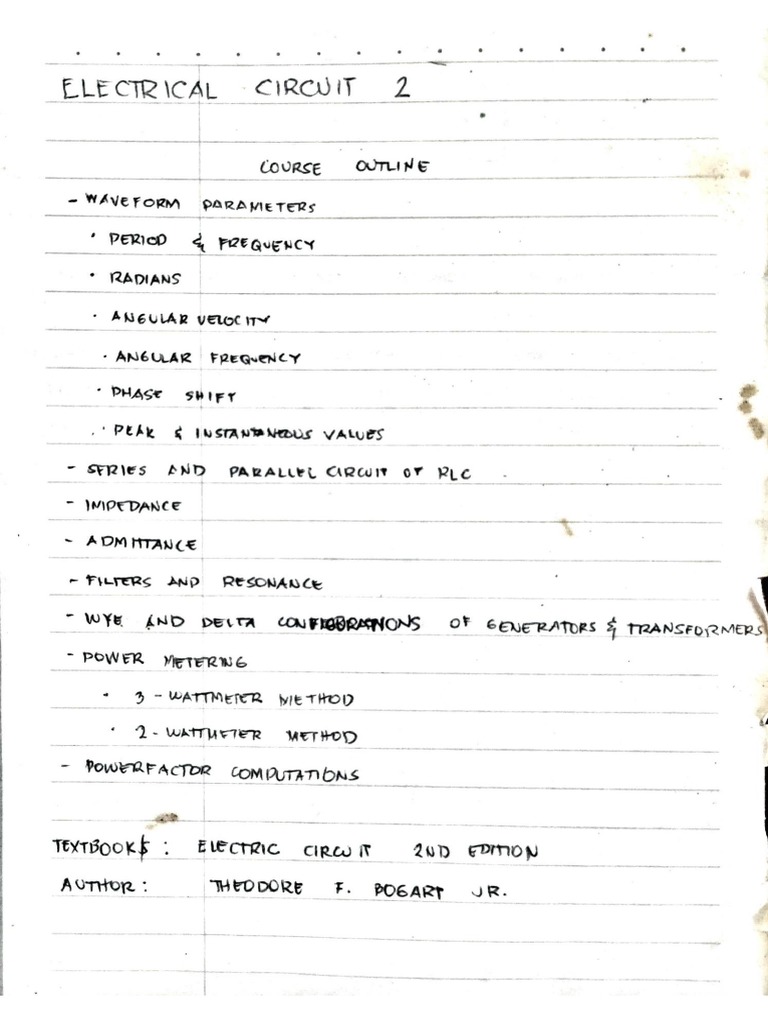 ELECTRICAL CIRCUIT 2
COURSE OUTLINE
- WAVEFORM PARAMETERS
· PERIOD & FREQUENCY
· RADIANS
· ANGULAR VELOCITY
· ANGULAR FREQUENCY
· PHASE SHIFT
· PEAK & INSTANTANEOUS VALUES
- SERIES AND PARALLEL CIRCUIT OF RLC
- IMPEDANCE
- ADMITTANCE
- FILTERS AND RESONANCE
- WYE AND DELTA CONFIGURATIONS OF GENERATORS & TRANSFORMERS
- POWER METERING
· 3 - WATTMETER METHOD
· 2 - WATTMETER METHOD
- POWERFACTOR COMPUTATIONS
TEXTBOOKS : ELECTRIC CIRCUIT 2ND EDITION
AUTHOR : THEODORE F. BOGART JR.